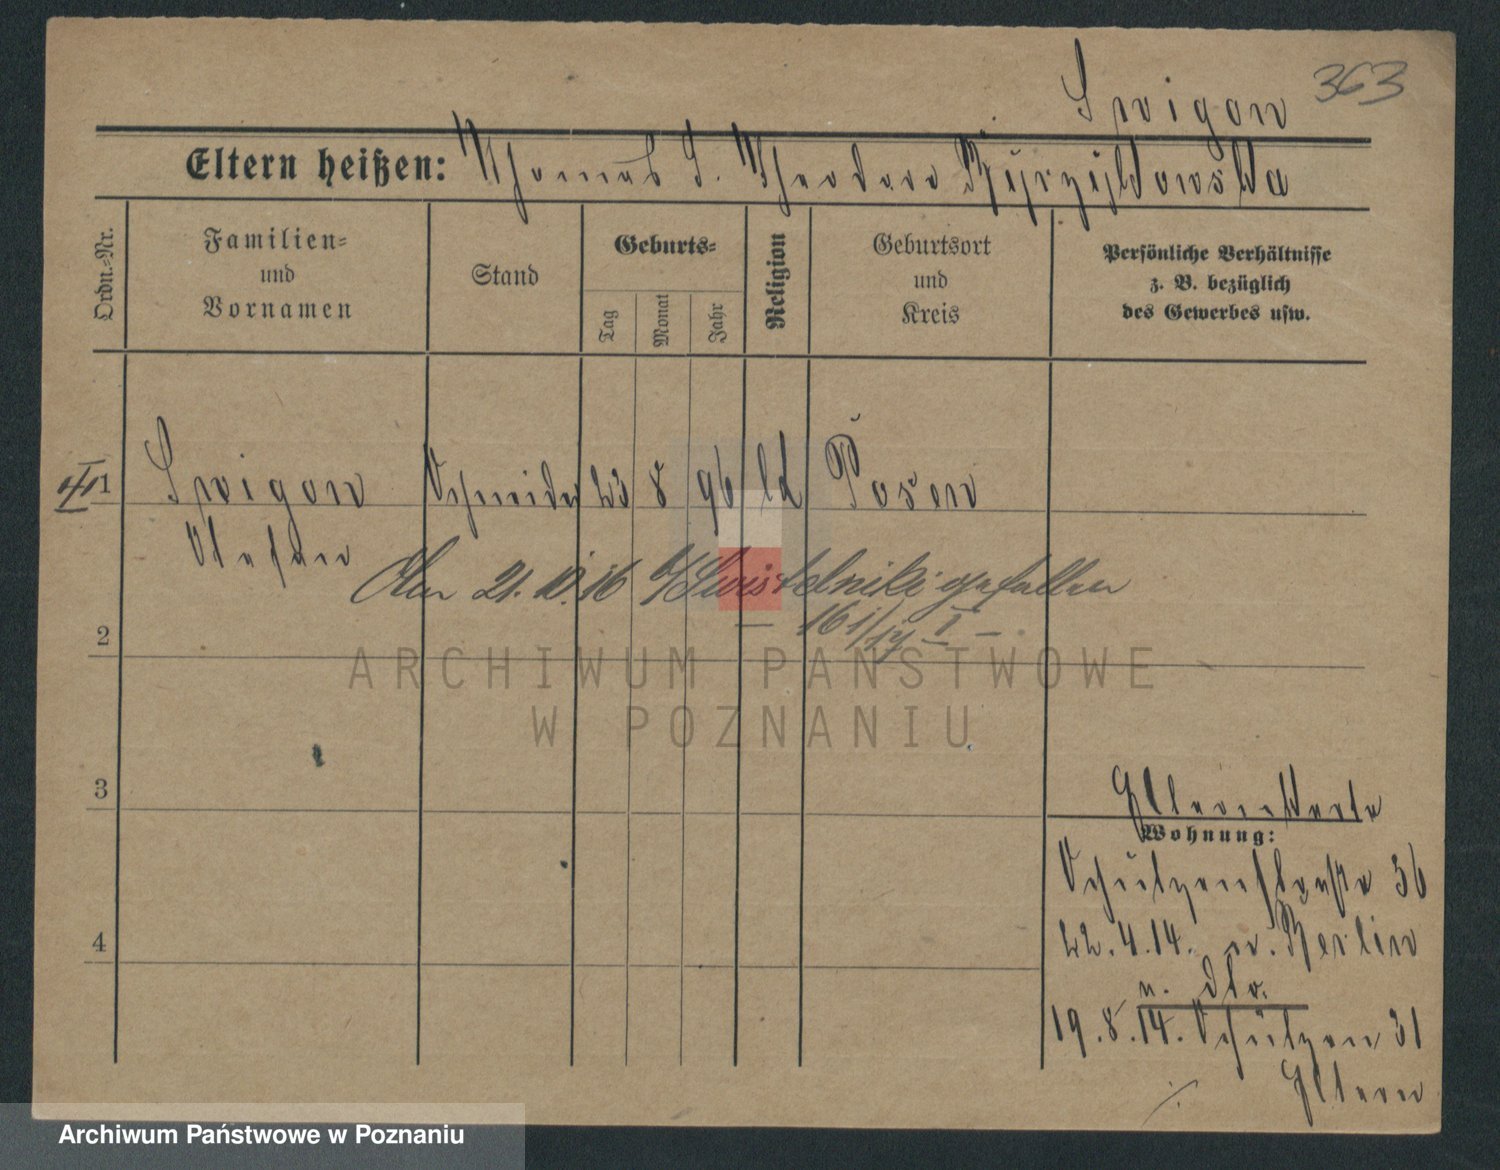 Swigon 363
Eltern heißen: Thomas S. Theodora Kurzykowska
Ordn.-Nr.
Familien-
und
Vornamen
Stand
Geburts-
Tag
Monat
Jahr
Religion
Geburtsort
und
Kreis
Persönliche Verhältnisse
z. B. bezüglich
des Gewerbes usw.
1 Swigon Schneider 23 8 96 ld Posen
Stefan
Am 21. 10. 16 b/Swistelniki gefallen
2
3
4
Elternkarte
Wohnung:
Schützenstraße 36
22.4.14. n. Berlin
19.8.14. Schützen 31
Eltern
ARCHIWUM PAŃSTWOWE
W POZNANIU
Archiwum Państwowe w Poznaniu